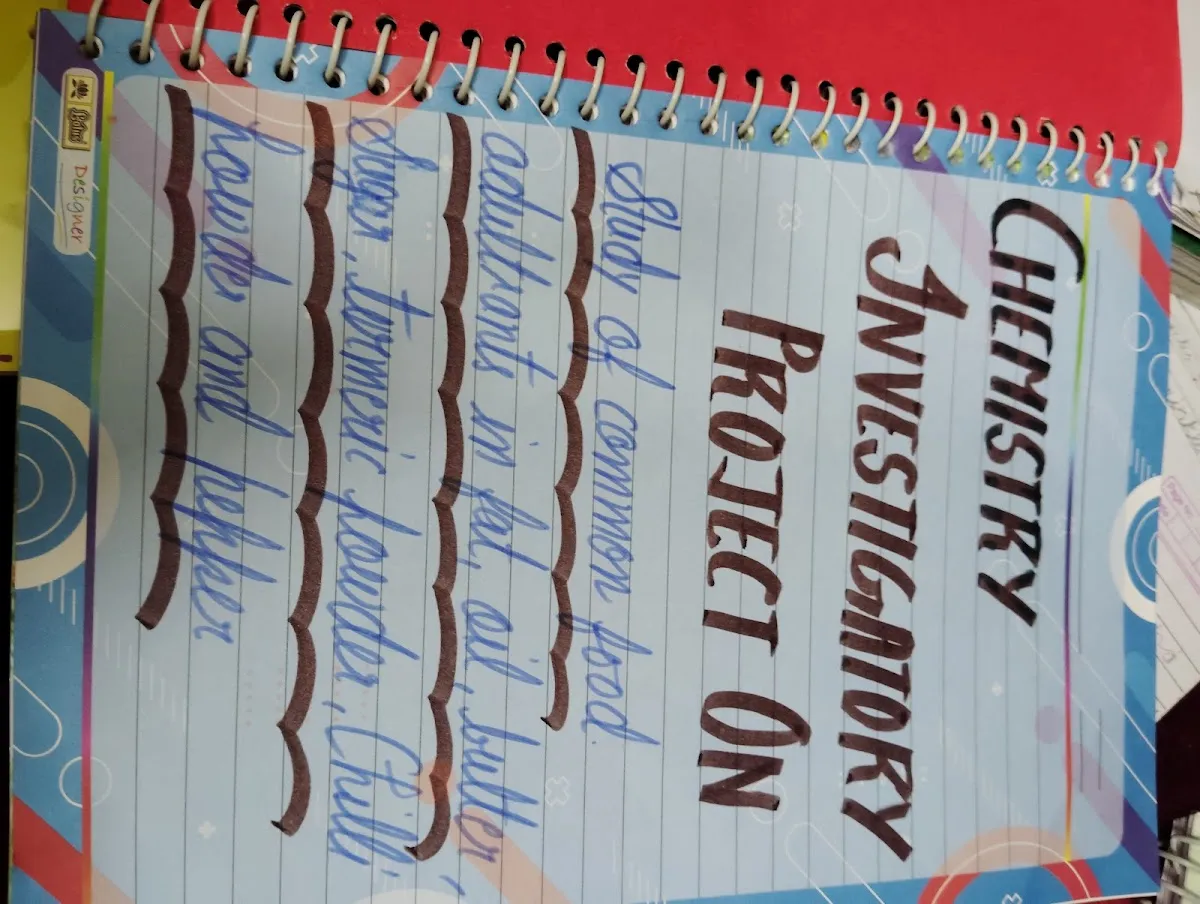 CHEMISTRY
INVESTIGATORY
PROJECT ON
Study of common food
adultrants in fat, oil, butter,
Sugar, turmeric powder, Chilli
powder and pepper
Designer